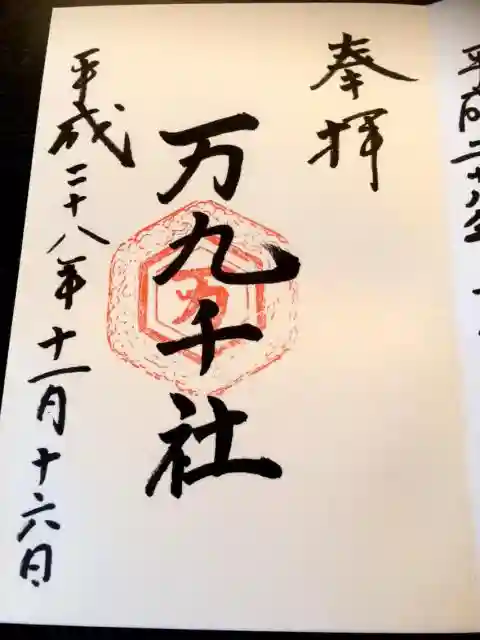 奉拝
万九千社
万
平成二十八年十一月十六日
平成二十八年